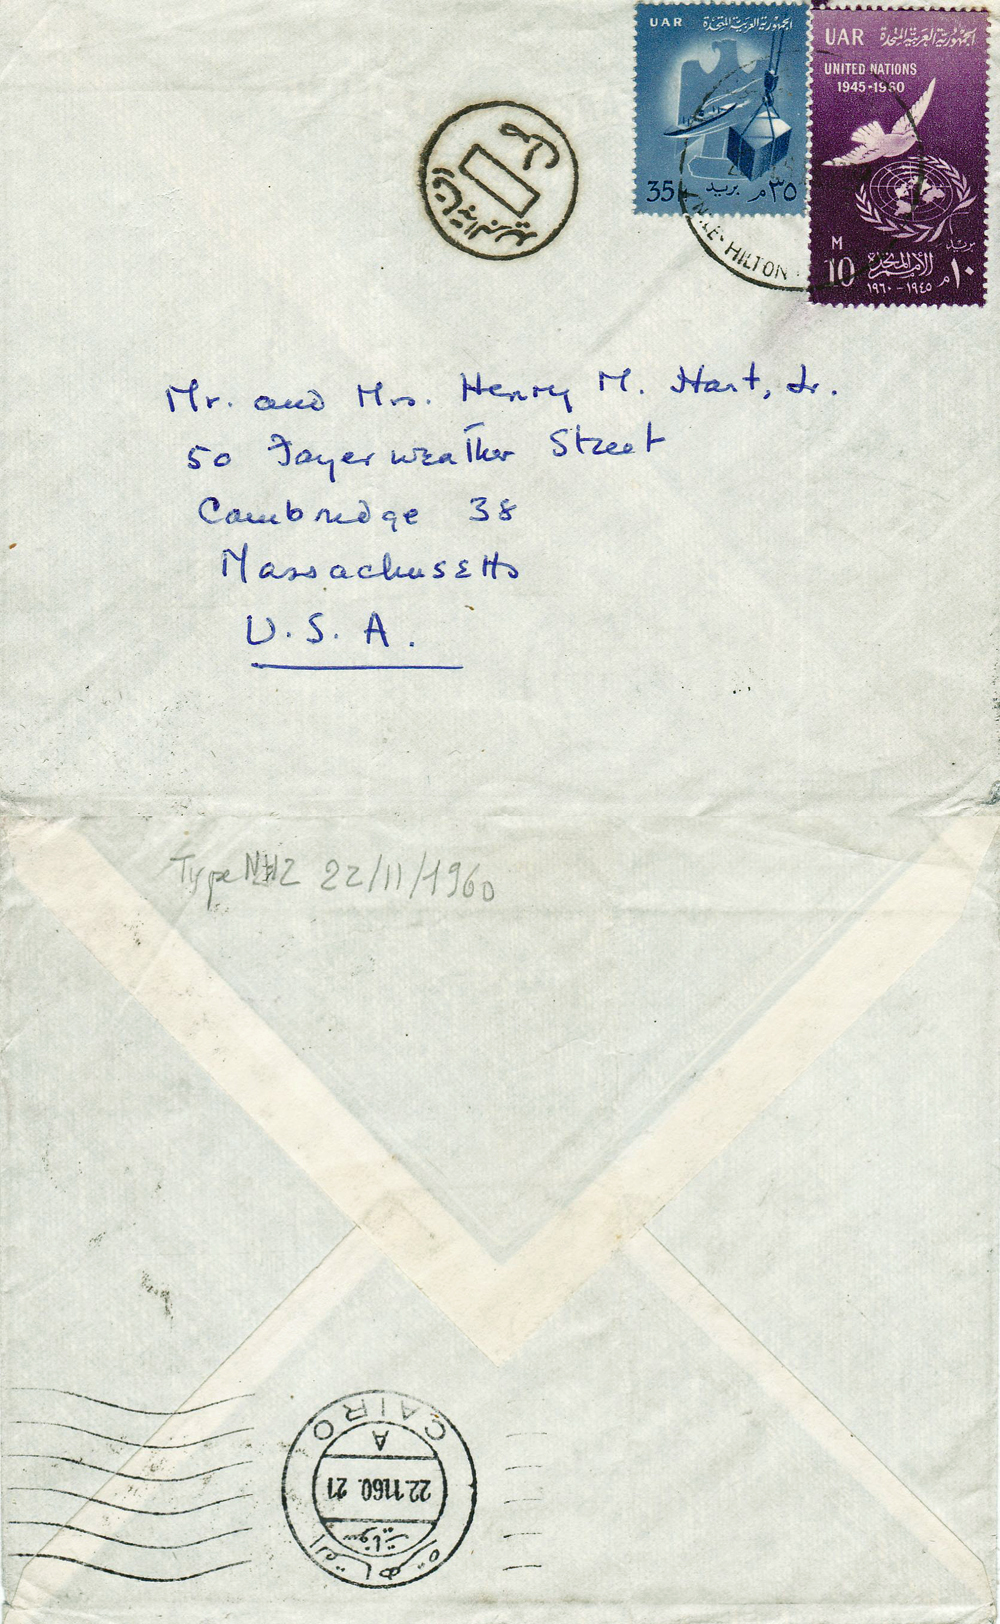 UAR الجمهورية العربية المتحدة
35 بريد ٣٥ م
UAR الجمهورية العربية المتحدة
UNITED NATIONS
1945-1960
بريد
M
10 الأمم المتحدة ١٠ م
١٩٦٠ - ١٩٤٥
NILE-HILTON
Mr. and Mrs. Henry M. Hart, Jr.
50 Fayerweather Street
Cambridge 38
Massachusetts
U.S.A.
Type NH2 22/11/1960
CAIRO
A
22.1160. 21
القاهرة